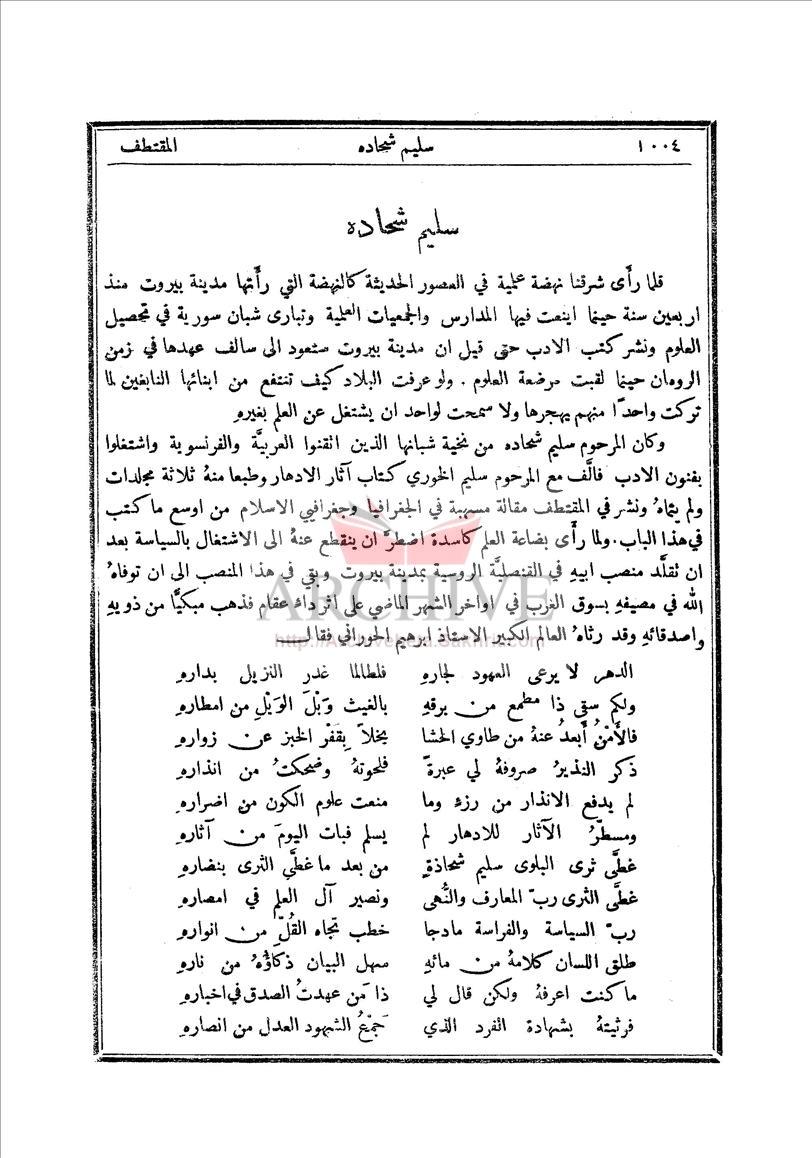 ١٠٠٤ سليم شحاده المقتطف
سليم شحاده
قلما رأى شرقنا نهضة علمية في العصور الحديثة كالنهضة التي رأَتها مدينة بيروت منذ
اربعين سنة حينما اينعت فيها المدارس والجمعيات العلمية وتبارى شبان سورية في تحصيل
العلوم ونشر كتب الادب حتى قيل ان مدينة بيروت ستعود الى سالف عهدها في زمن
الرومان حينما لقبت مرضعة العلوم . ولو عرفت البلاد كيف تنتفع من ابنائها النابغين لما
تركت واحدًا منهم يهجرها ولا سمحت لواحد ان يشتغل عن العلم بغيره
وكان المرحوم سليم شحاده من نخبة شبانها الذين اتقنوا العربيَّة والفرنسوية واشتغلوا
بفنون الادب فألَّف مع المرحوم سليم الخوري كتاب آثار الادهار وطبعا منهُ ثلاثة مجلدات
ولم يتماهُ ونشر في المقتطف مقالة مسهبة في الجغرافيا وجغرافيي الاسلام من اوسع ما كتب
في هذا الباب . ولما رأَى بضاعة العلم كاسدة اضطرَّ ان ينقطع عنهُ الى الاشتغال بالسياسة بعد
ان تقلَّد منصب ابيهِ في القنصليَّة الروسية بمدينة بيروت وبقي في هذا المنصب الى ان توفاهُ
الله في مصيفهِ بسوق الغرب في اواخر الشهر الماضي على اثر داءٍ عقام فذهب مبكيًّا من ذويهِ
واصدقائهِ وقد رثاهُ العالم الكبير الاستاذ ابرهيم الحوراني فقال
الدهر لا يرعى العهود لجارهِ فلطالما غدر النزيل بدارهِ
ولكم سقى ذا مطمع من برقهِ بالغيث وَبْلَ الوَيْلِ من امطارهِ
فالأَمْنُ أَبعدُ عنهُ من طاوي الحشا يخلاً بِقَفْر الخبز عن زوارهِ
ذكر النذيرُ صروفهُ لي عبرةً فلحوتهُ وضحكتُ من انذارهِ
لم يدفع الانذار من رزءٍ وما منعت علوم الكون من اضرارهِ
ومسطّرُ الآثار للادهار لم يسلم فبات اليومَ من آثارهِ
غطَّى ثرى البلوى سليم شحاذةٍ من بعد ما غطَّى الثرى بنضارهِ
غطَّى الثرى ربّ المعارف والنُّهى ونصير آل العلم في امصارهِ
ربّ السياسة والفراسة مادجا خطب تجاه القُلّ من انوارهِ
طلق اللسان كلامهُ من مائهِ سهل البيان ذكاؤُهُ من نارهِ
ما كنت اعرفهُ ولكن قال لي ذا مَن عهدتُ الصدق في اخبارهِ
فرثيتهُ بشهادة الفرد الذي جَمْعُ الشهود العدل من انصارهِ
ARCHIVE